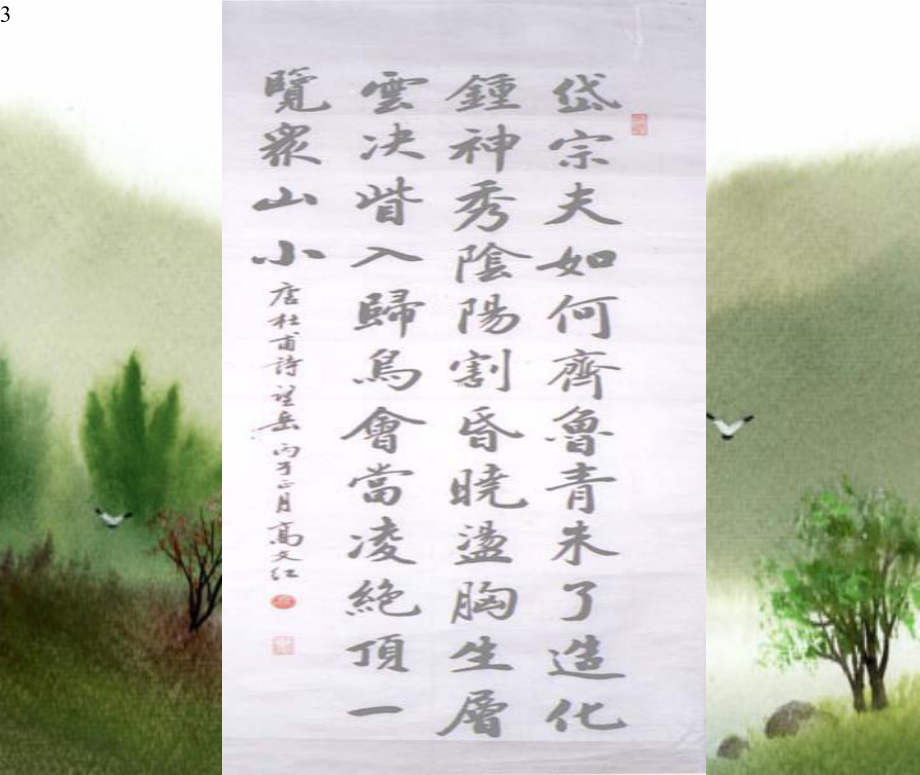 3
岱宗夫如何齊魯青未了造化
鍾神秀陰陽割昏曉盪胸生層
雲决眥入歸鳥會當凌絶頂一
覽衆山小
唐杜甫詩望岳 丙子正月高文红